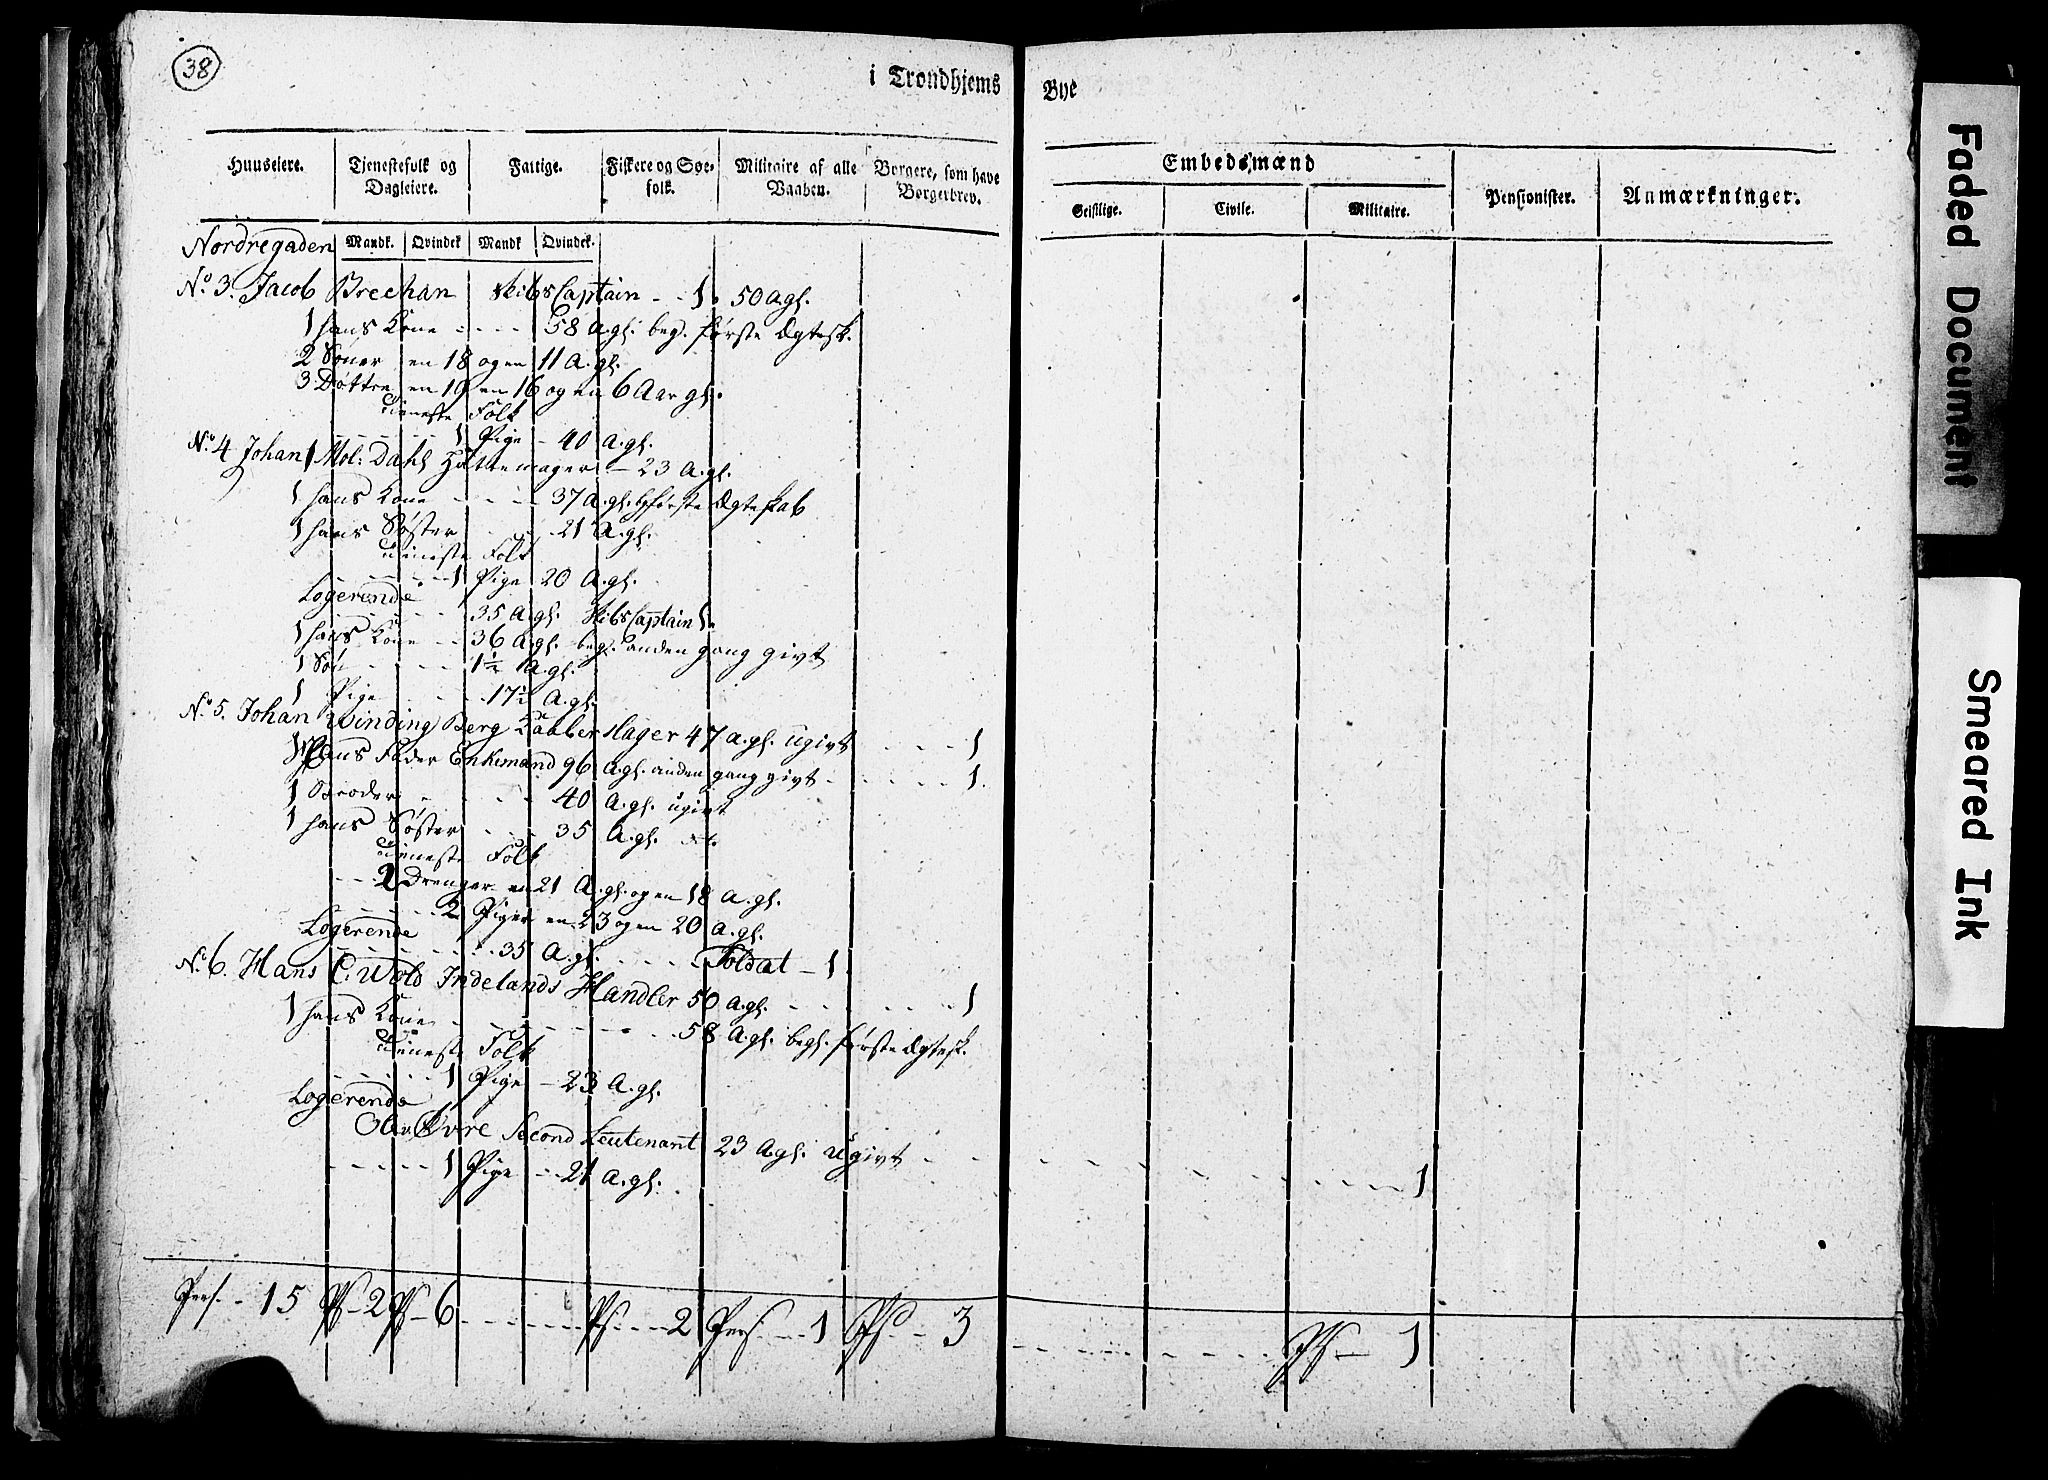 38
i Trondhjems Bye
Huuseiere. Tjenestefolk og Dagleiere. Fattige. Fiskere og Søefolk. Militaire af alle Vaaben. Borgere, som have Borgerbrev.
Embedsmænd
Geistlige. Civile. Militaire. Pensionister. Anmærkninger.
Nordregaden Mandk. Qvindek Mandk Qvindek.
No. 3. Jacob Brechan Skibs Captain - - 1. 50 A.gl.
1 hans Kone - - - - 58 A.gl. beg. første Ægtesk.
2 Sønner en 18 og en 11 A.gl.
3 Døttre en 19 en 16 og en 6 Aar gl.
Tieneste Folk
- - - - - 1 Pige - 40 A.gl.
No. 4 Johan Mol: Dahl Hattemager - 23 A.gl.
1 hans Kone - - - - 37 A.gl. b første Ægteskab
1 hans Søster - - - 21 A.gl.
Tieneste Folk
- - - - - 1 Pige 20 A.gl.
Logerende
- - - - - 35 A.gl. Skibs Captain 1.
1 hans Kone - - 36 A.gl. beg. anden gang givt
1 Søn - - - - 1½ A.gl.
1 Pige - - - 17½ A.gl.
No. 5. Johan Winding Berg Kobberslager 47 A.gl. ugivt - - - 1
1 Hans Fader Enkemand 96 A.gl. anden gang givt - - - - - 1.
1 Broder - - - - 40 A.gl. ugivt
1 hans Søster - - - 35 A.gl.
Tieneste Folk
- - 2 Drenger en 21 A.gl. og en 18 A.gl.
- - - - - 2 Piger en 23 og en 20 A.gl.
Logerende
- - - - - - 35 A.gl. - - - - - Soldat - 1
No. 6. Hans C. Wold Indelands Handler 50 A.gl. - - - - - 1
1 hans Kone - - - - - - - 58 A.gl. begl. første Ægtesk.
Tieneste Folk
- - - - - 1 Pige - 23 A.gl.
Logerende
Øvre Second Leutenant 23 A.gl. ugivt - - - - - - - - - - 1
- - - - - 1 Pige - - 21 A.gl.
Pers. - 15 Ps - 2 Ps - 6 - - - - - - Ps - - - 2 Pers. - - 1 Ps - 3 - - - - - - Ps - 1
Faded Document
Smeared Ink